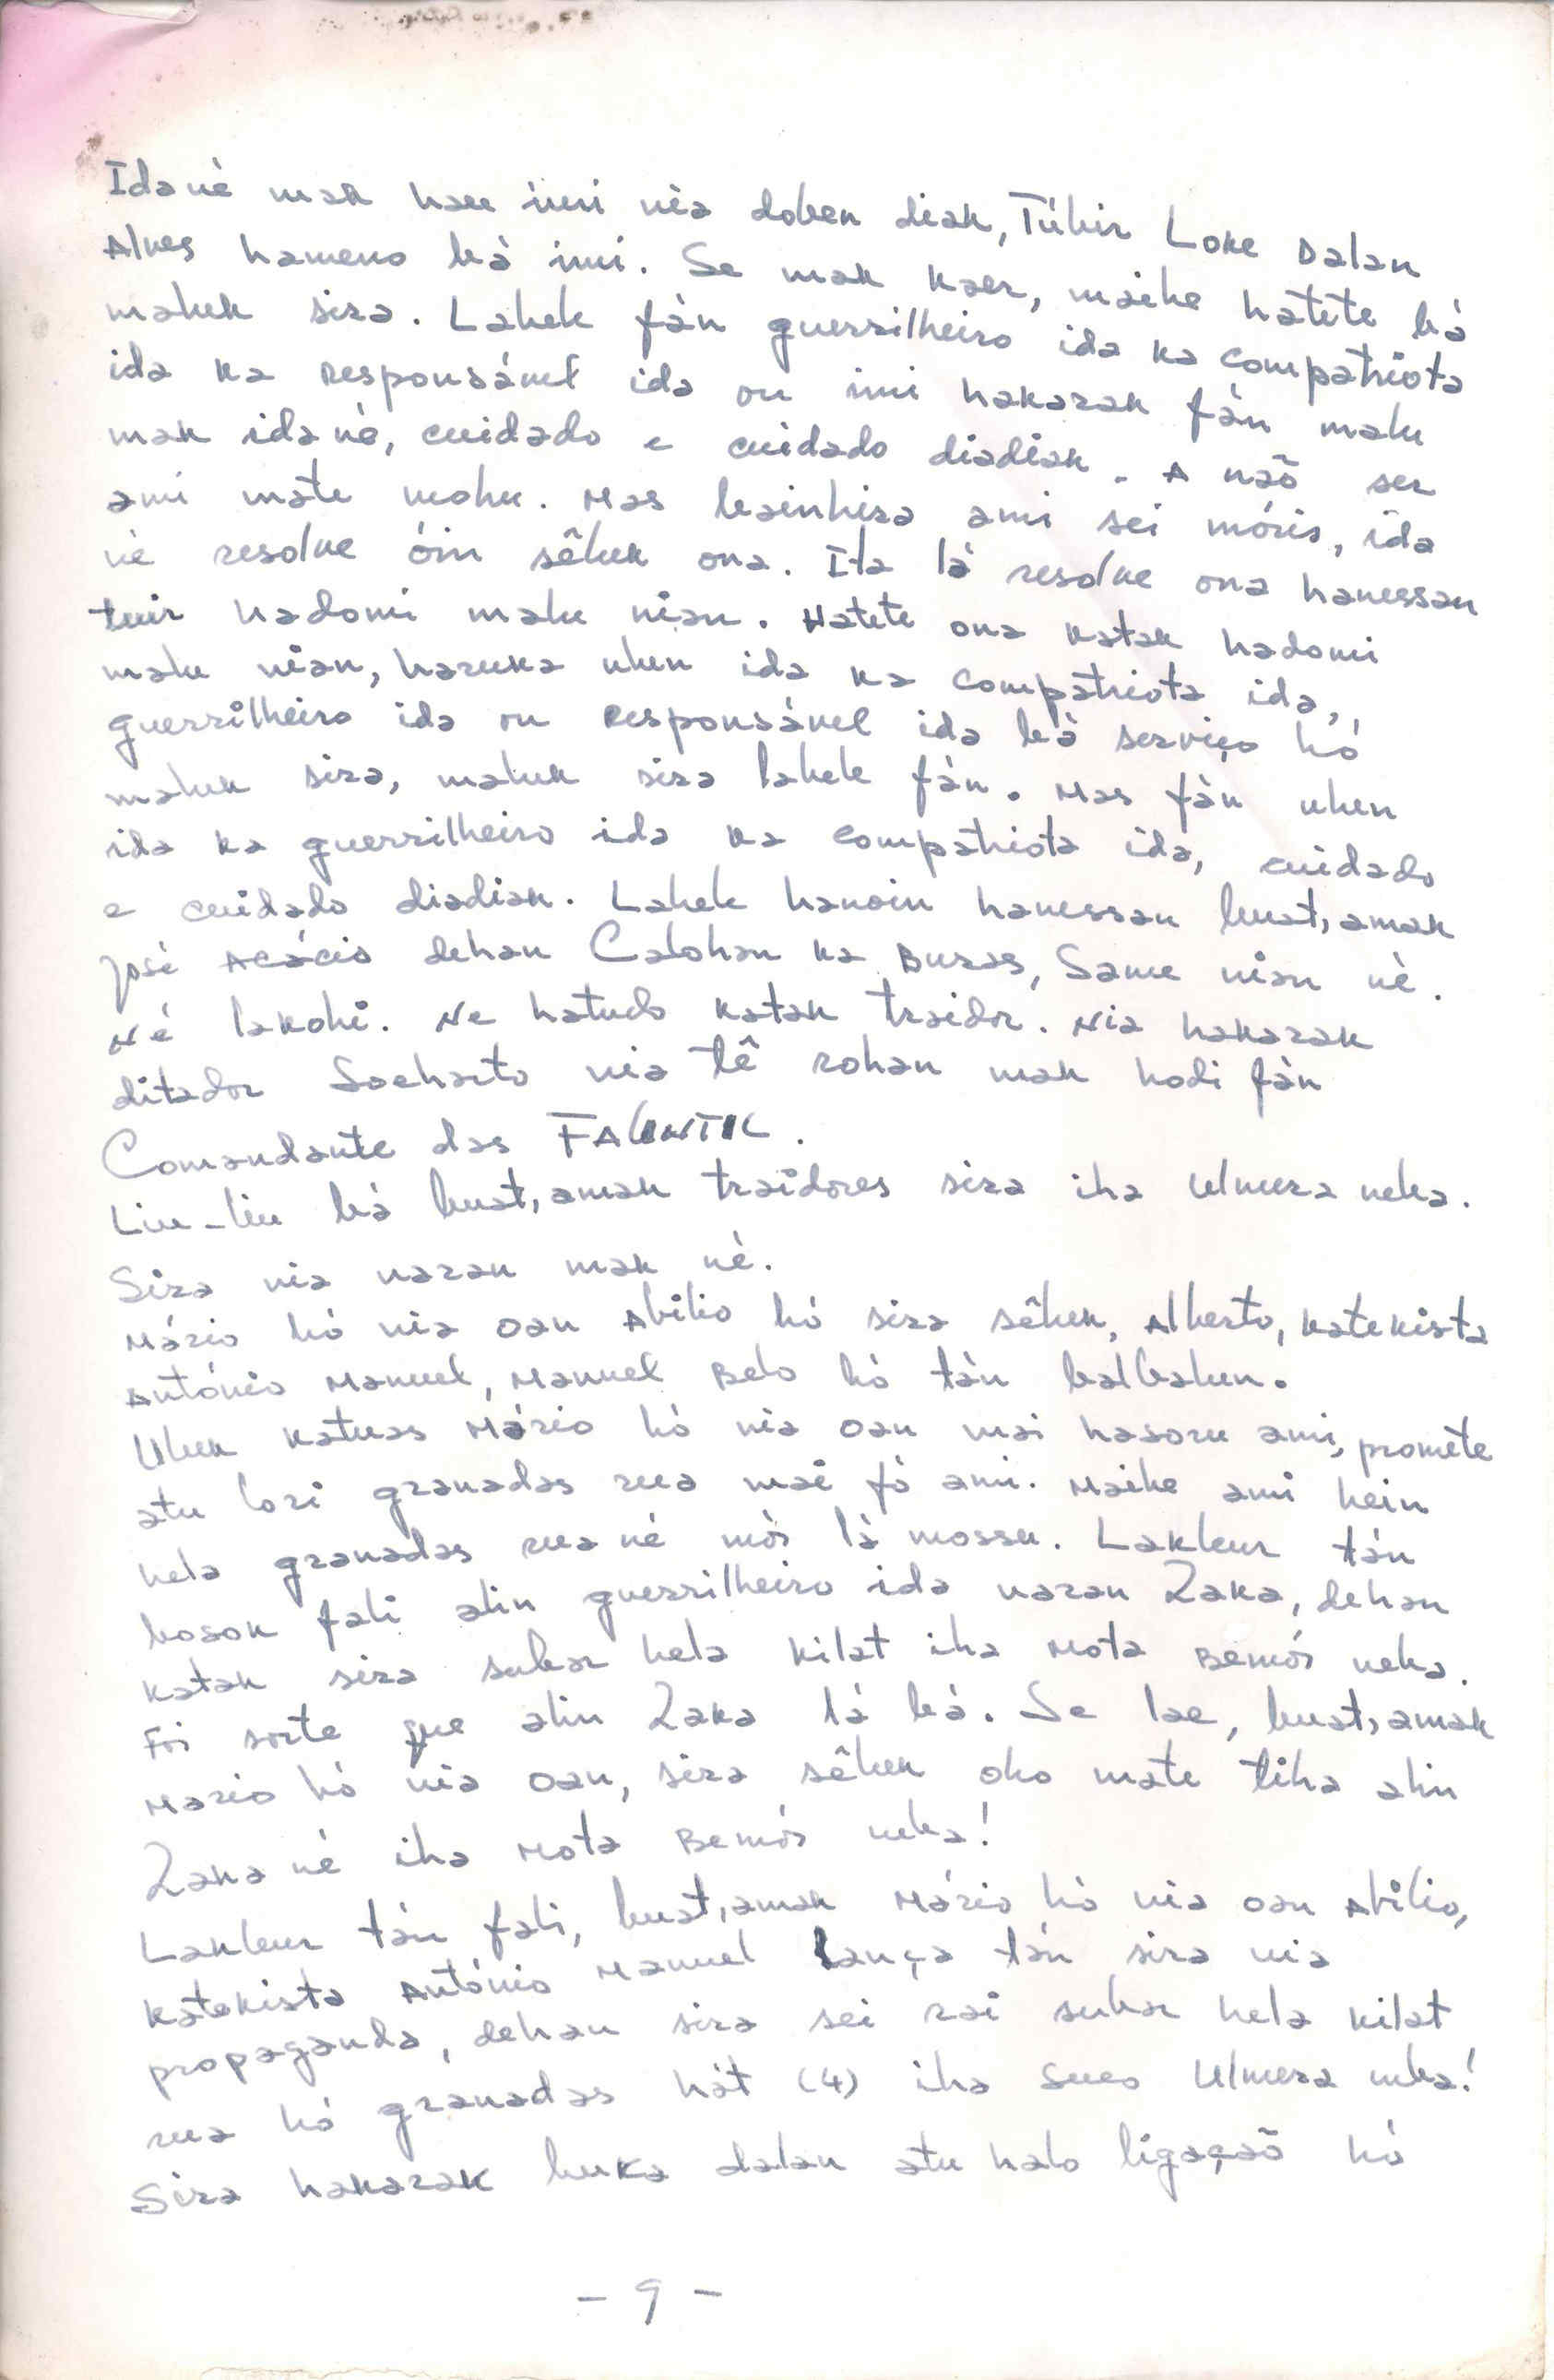 Ida nè mak hau imi nia doben diak, Túbir Loke Dalan
Alves hameno bà imi. Se mak kaer, maibe hatete bà
maluk sira. Labele fàn guerrilheiro ida ka compatriota
ida ka responsável ida ou imi hakarak fàn malu
mak ida nè, cuidado e cuidado diadiak. A naõ ser
ami mate mohu. Mas bainhira ami sei móris, ida
nè resolve óin sêluk ona. Ita là resolve ona hanessan
tuir hadomi malu nian. Hatete ona katak hadomi
malu nian, haruka ulun ida ka compatriota ida,
guerrilheiro ida ou responsável ida bà serviço hó
maluk sira, maluk sira labele fàn. Mas fàn ulun
ida ka guerrilheiro ida ka compatriota ida, cuidado
e cuidado diadiak. Labele hanoin hanessan buat, amak
José Acácio dehan Calohan ka Buras, Same nian nè.
Né lakohi. Ne hatudo katak traidor. Nia hakarak
ditador Soeharto nia tê rohan mak hodi fàn
Comandante das FALINTIL.
Liu-liu bà buat, amak traidores sira iha Ulmera neba.
Sira nia naran mak nè.
Mário hó nia oan Abílio hó sira sêluk, Alberto, katekista
António Manuel, Manuel Belo hó tàn balbalun.
Uluk katuas Mário hó nia oan mai hasoru ami, promete
atu lori granadas rua mai fó ami. Maibe ami hein
hela granadas rua né mós là mossu. Lakleur tán
bosok fali alin guerrilheiro ida naran Zaka, dehan
katak sira subar hela kilat iha Mota Bemós neba.
Foi sorte que alin Zaka là bá. Se lae, buat, amak
Mario hó nia oan, sira sêluk oho mate tiha alin
Zaka né iha Mota Bemós neba!
Lakleur tán fali, buat, amak Mário hó nia oan Abílio,
katekista António Manuel lança tán sira nia
propaganda, dehan sira sei rai subar hela kilat
rua hó granadas hát (4) iha Suco Ulmera neba!
Sira hakarak buka dalan atu halo ligaçaõ hó
- 9 -